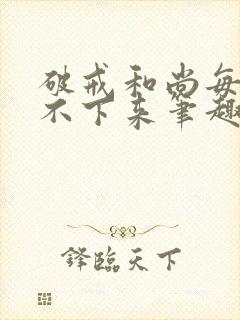 破戒和尚每
不下来笔趣
锋临天下